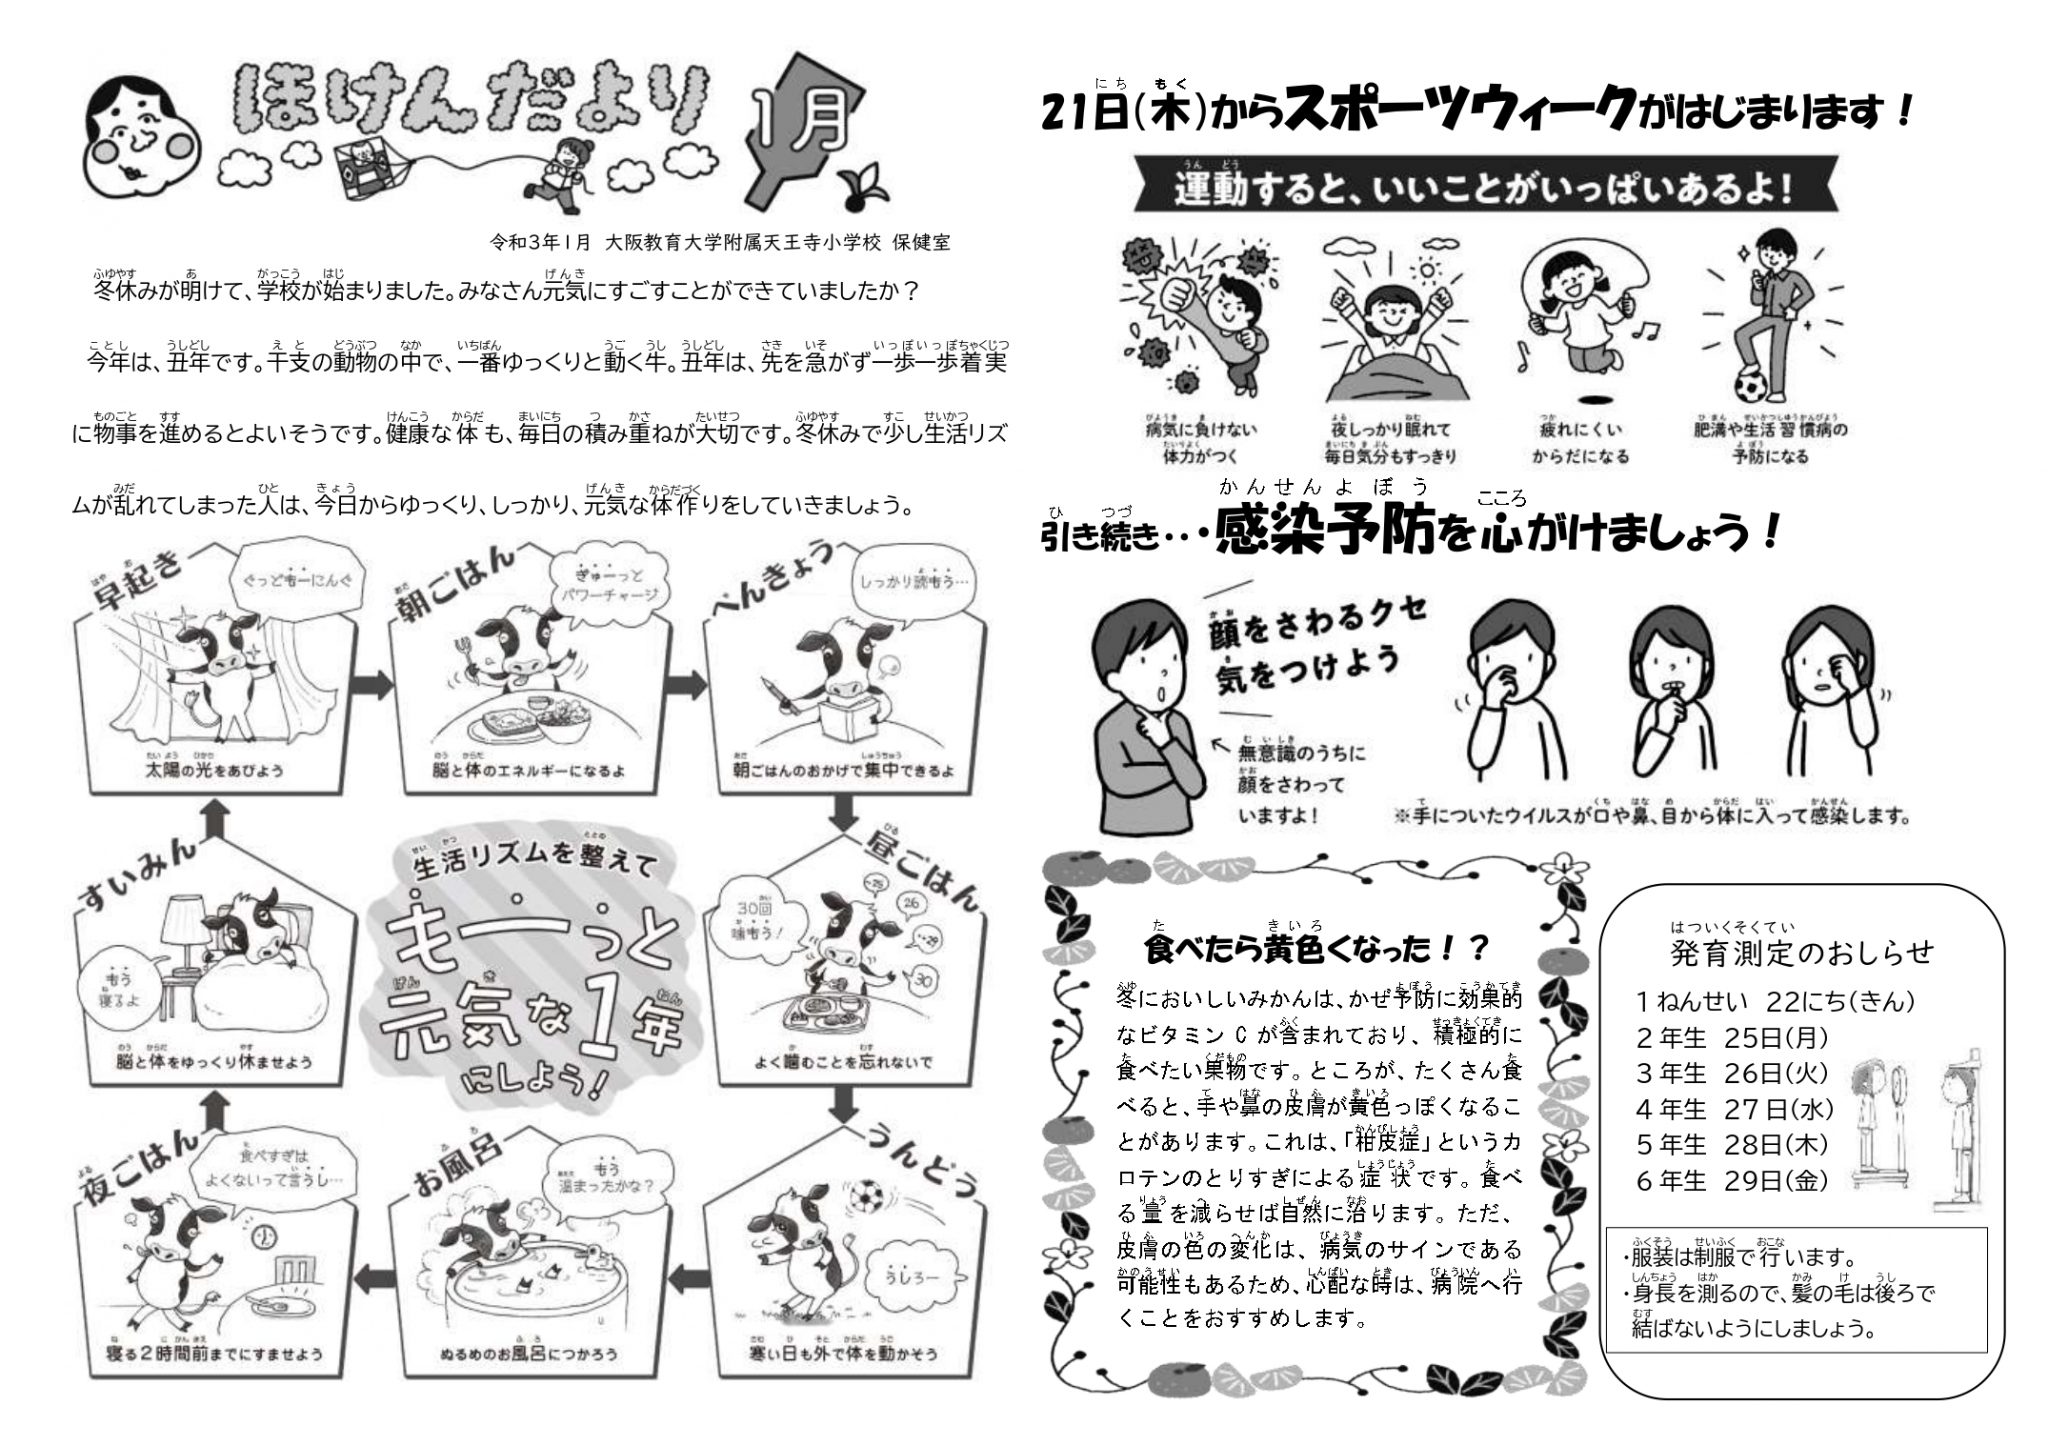 ほけんだより
1月
令和3年1月 大阪教育大学附属天王寺小学校 保健室
冬休みが明けて、学校が始まりました。みなさん元気にすごすことができていましたか？
今年は、丑年です。干支の動物の中で、一番ゆっくりと動く牛。丑年は、先を急がず一歩一歩着実
に物事を進めるとよいそうです。健康な体も、毎日の積み重ねが大切です。冬休みで少し生活リズ
ムが乱れてしまった人は、今日からゆっくり、しっかり、元気な体作りをしていきましょう。
早起き
ぐっどもーにんぐ
太陽の光をあびよう
朝ごはん
ぎゅーっと
パワーチャージ
脳と体のエネルギーになるよ
べんきょう
しっかり読もう…
朝ごはんのおかげで集中できるよ
昼ごはん
30回
噛もう！
26
30
よく噛むことを忘れないで
うんどう
うしろー
寒い日も外で体を動かそう
お風呂
もう
温まったかな？
ぬるめのお風呂につかろう
夜ごはん
食べすぎは
よくないって言うし…
寝る2時間前までにすませよう
すいみん
もう
寝るよ
脳と体をゆっくり休ませよう
生活リズムを整えて
もーっと
元気な1年
にしよう！
21日(木)からスポーツウィークがはじまります！
運動すると、いいことがいっぱいあるよ！
病気に負けない
体力がつく
夜しっかり眠れて
毎日気分もすっきり
疲れにくい
からだになる
肥満や生活習慣病の
予防になる
引き続き・・・感染予防を心がけましょう！
顔をさわるクセ
気をつけよう
無意識のうちに
顔をさわって
いますよ！
※手についたウイルスが口や鼻、目から体に入って感染します。
食べたら黄色くなった！？
冬においしいみかんは、かぜ予防に効果的
なビタミン C が含まれており、積極的に
食べたい果物です。ところが、たくさん食
べると、手や鼻の皮膚が黄色っぽくなるこ
とがあります。これは、「柑皮症」というカ
ロテンのとりすぎによる症状です。食べ
る量を減らせば自然に治ります。ただ、
皮膚の色の変化は、病気のサインである
可能性もあるため、心配な時は、病院へ行
くことをおすすめします。
発育測定のおしらせ
1ねんせい 22にち(きん)
2年生 25日(月)
3年生 26日(火)
4年生 27日(水)
5年生 28日(木)
6年生 29日(金)
・服装は制服で行います。
・身長を測るので、髪の毛は後ろで
結ばないようにしましょう。